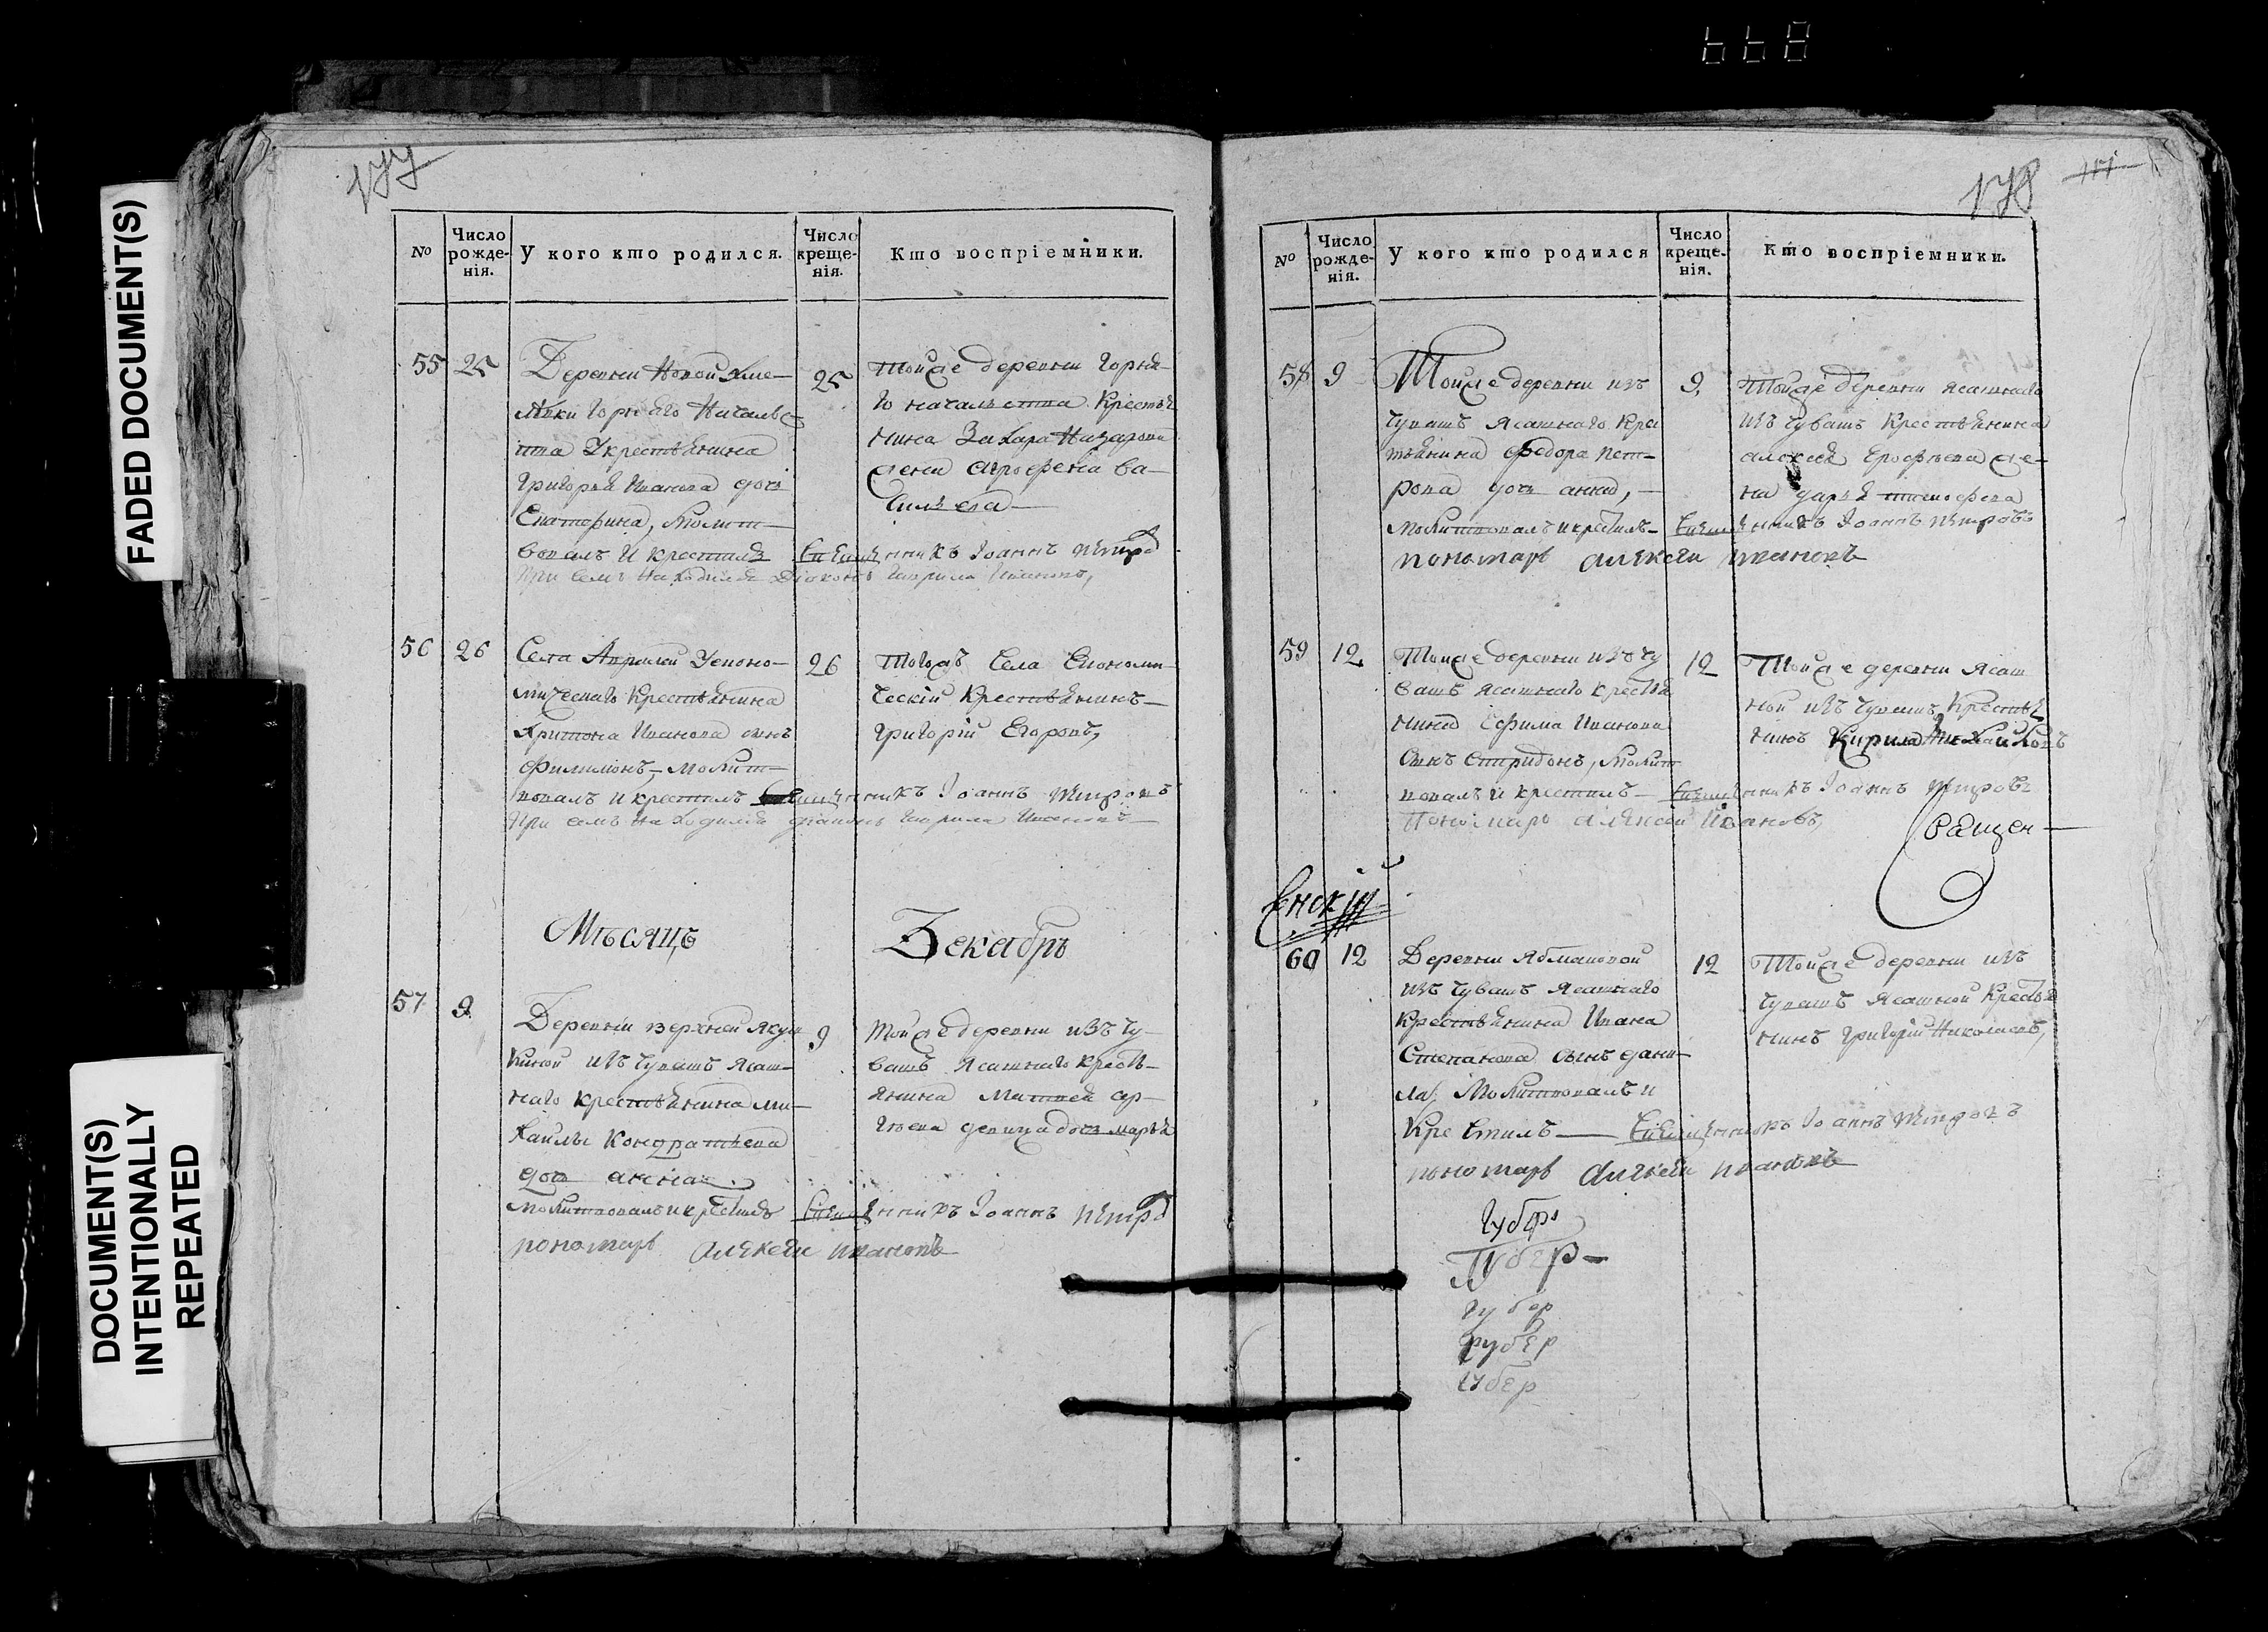 668
FADED DOCUMENT(S)
DOCUMENT(S)
INTENTIONALLY
REPEATED
177
№ Число рожденія. У кого кто родился. Число крещенія. Кто воспріемники.
55 25
Деревни Новой Хме-
левки Горнаго Начальс
тва У крестьянина
Григорья Иванова дочь
Екатерина, Молит-
вовалъ и крестилъ Священникъ Іоаннъ Петро
При семъ находился Діяконъ Гаврила Ивановъ,
25
Тойже деревни Горна-
го начальства Крестья
нина Захара Назарова
жена Агрофена Ва-
сильева
56 26
Села Аврилей Уеконо-
мическаго Крестьянина
Иванова сынъ
Филимонъ, Молит-
вовалъ и крестилъ Священникъ Іоаннъ Петровъ
При семъ находился діаконъ Гаврила Ивановъ
26
Тогожъ Села Економи-
ческій Крестьянинъ
Григорій Егоровъ,
Мѣсяцъ Декабрь
57 9
Деревни верхней Якуш
киной изъ Чувашъ Ясаш-
наго крестьянина Ми-
хайлы Кондратьева
дочь анна
молитвовалъ и крестилъ Священникъ Іоаннъ Петро
пономарь Алексеи ивановъ
9
Тойже деревни изъ Чу-
вашъ Ясашнаго Кресть-
янина Матвея
девица дочь марья
178 151
№ Число рожденія. У кого кто родился Число крещенія. Кто воспріемники.
58 9
Тойже деревни изъ
Чувашъ Ясашнаго Кре
стьянина Федора Пет-
рова дочь анна,
Молитвовалъ и крестилъ Священникъ Іоаннъ Петровъ
пономарь Алексеи ивановъ
9
Тойже деревни ясашнаго
изъ Чувашъ Крестьянина
алексея Ерофеева же-
на дарья тимофева
59 12
Тойже деревни изъ Чу
вашъ Ясашнаго крестья
нина Ефима Иванова
Сынъ Спиридонъ, Молит
вовалъ и крестилъ Священникъ Іоаннъ Петровъ
Пономарь Алексей Ивановъ,
12
Тойже деревни Ясаш
ной изъ Чувашъ Крестья
нинъ Кирила Михайловъ
Священ-
енскій
60 12
Деревни Абмановой
изъ Чувашъ Ясашнаго
Крестьянина Ивана
Степанова сынъ дани-
ла, Молитвовалъ и
Крестилъ Священникъ Іоаннъ Петровъ
пономарь Алексеи ивановъ
12
Тойже деревни изъ
Чувашъ Ясашной Крестья
нинъ Григорій Николаевъ,
Губер
Губер-
Губер
Губер
Губер